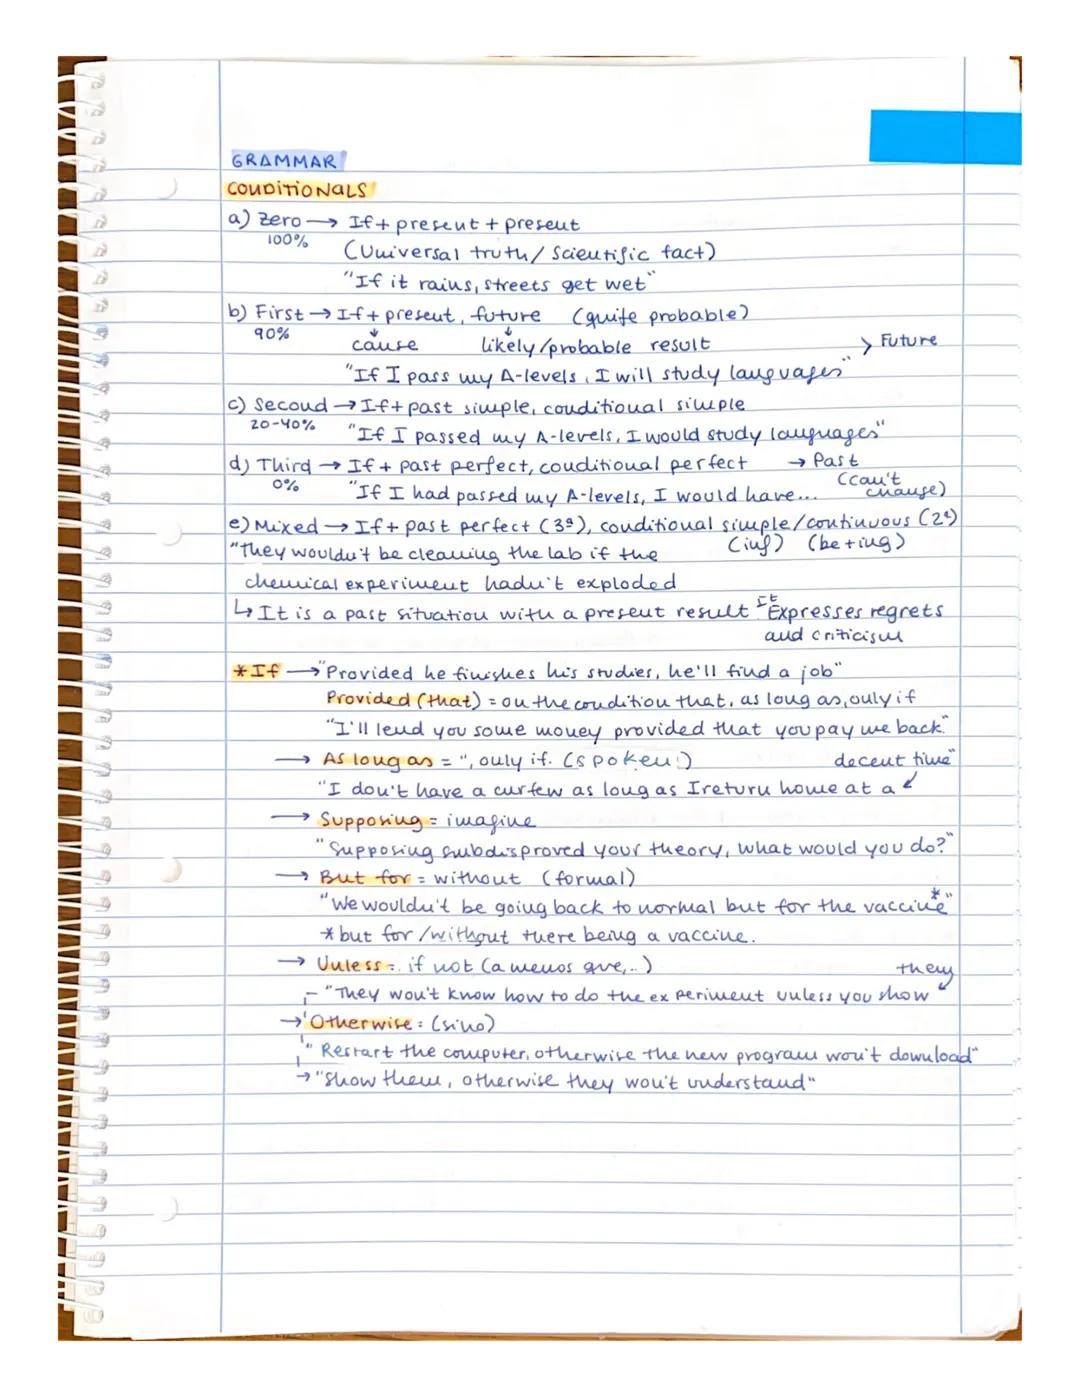 GRAMMAR
CONDITIONALS
a) Zero → If + present + present
100%
(Universal truth / Scientific fact)
"If it rains, streets get wet"
b) First → If + present, future (quite probable)
90% cause likely/probable result > Future
"If I pass my A-levels, I will study languages"
c) Second → If + past simple, conditional simple
20-40% "If I passed my A-levels, I would study languages"
d) Third → If + past perfect, conditional perfect → Past
0% "If I had passed my A-levels, I would have... (can't change)
e) Mixed → If + past perfect (3ª), conditional simple/continuous (2ª)
"they wouldn't be cleaning the lab if the (inf) (be+ing)
chemical experiment hadn't exploded
↳ It is a past situation with a present result. It Expresses regrets
and criticism
* If → "Provided he finishes his studies, he'll find a job"
Provided (that) = on the condition that, as long as, only if
"I'll lend you some money provided that you pay me back."
→ As long as = ", only if. (spoken!) decent time"
"I don't have a curfew as long as I return home at a
→ Supposing = imagine
"Supposing subdisproved your theory, what would you do?"
→ But for = without (formal)
"We wouldn't be going back to normal but for the vaccine*"
* but for /without there being a vaccine.
→ Unless = if not (a menos que,..) them
"They won't know how to do the experiment unless you show
→ Otherwise = (sino)
"Restart the computer, otherwise the new program won't download"
→ "Show them, otherwise they won't understand"